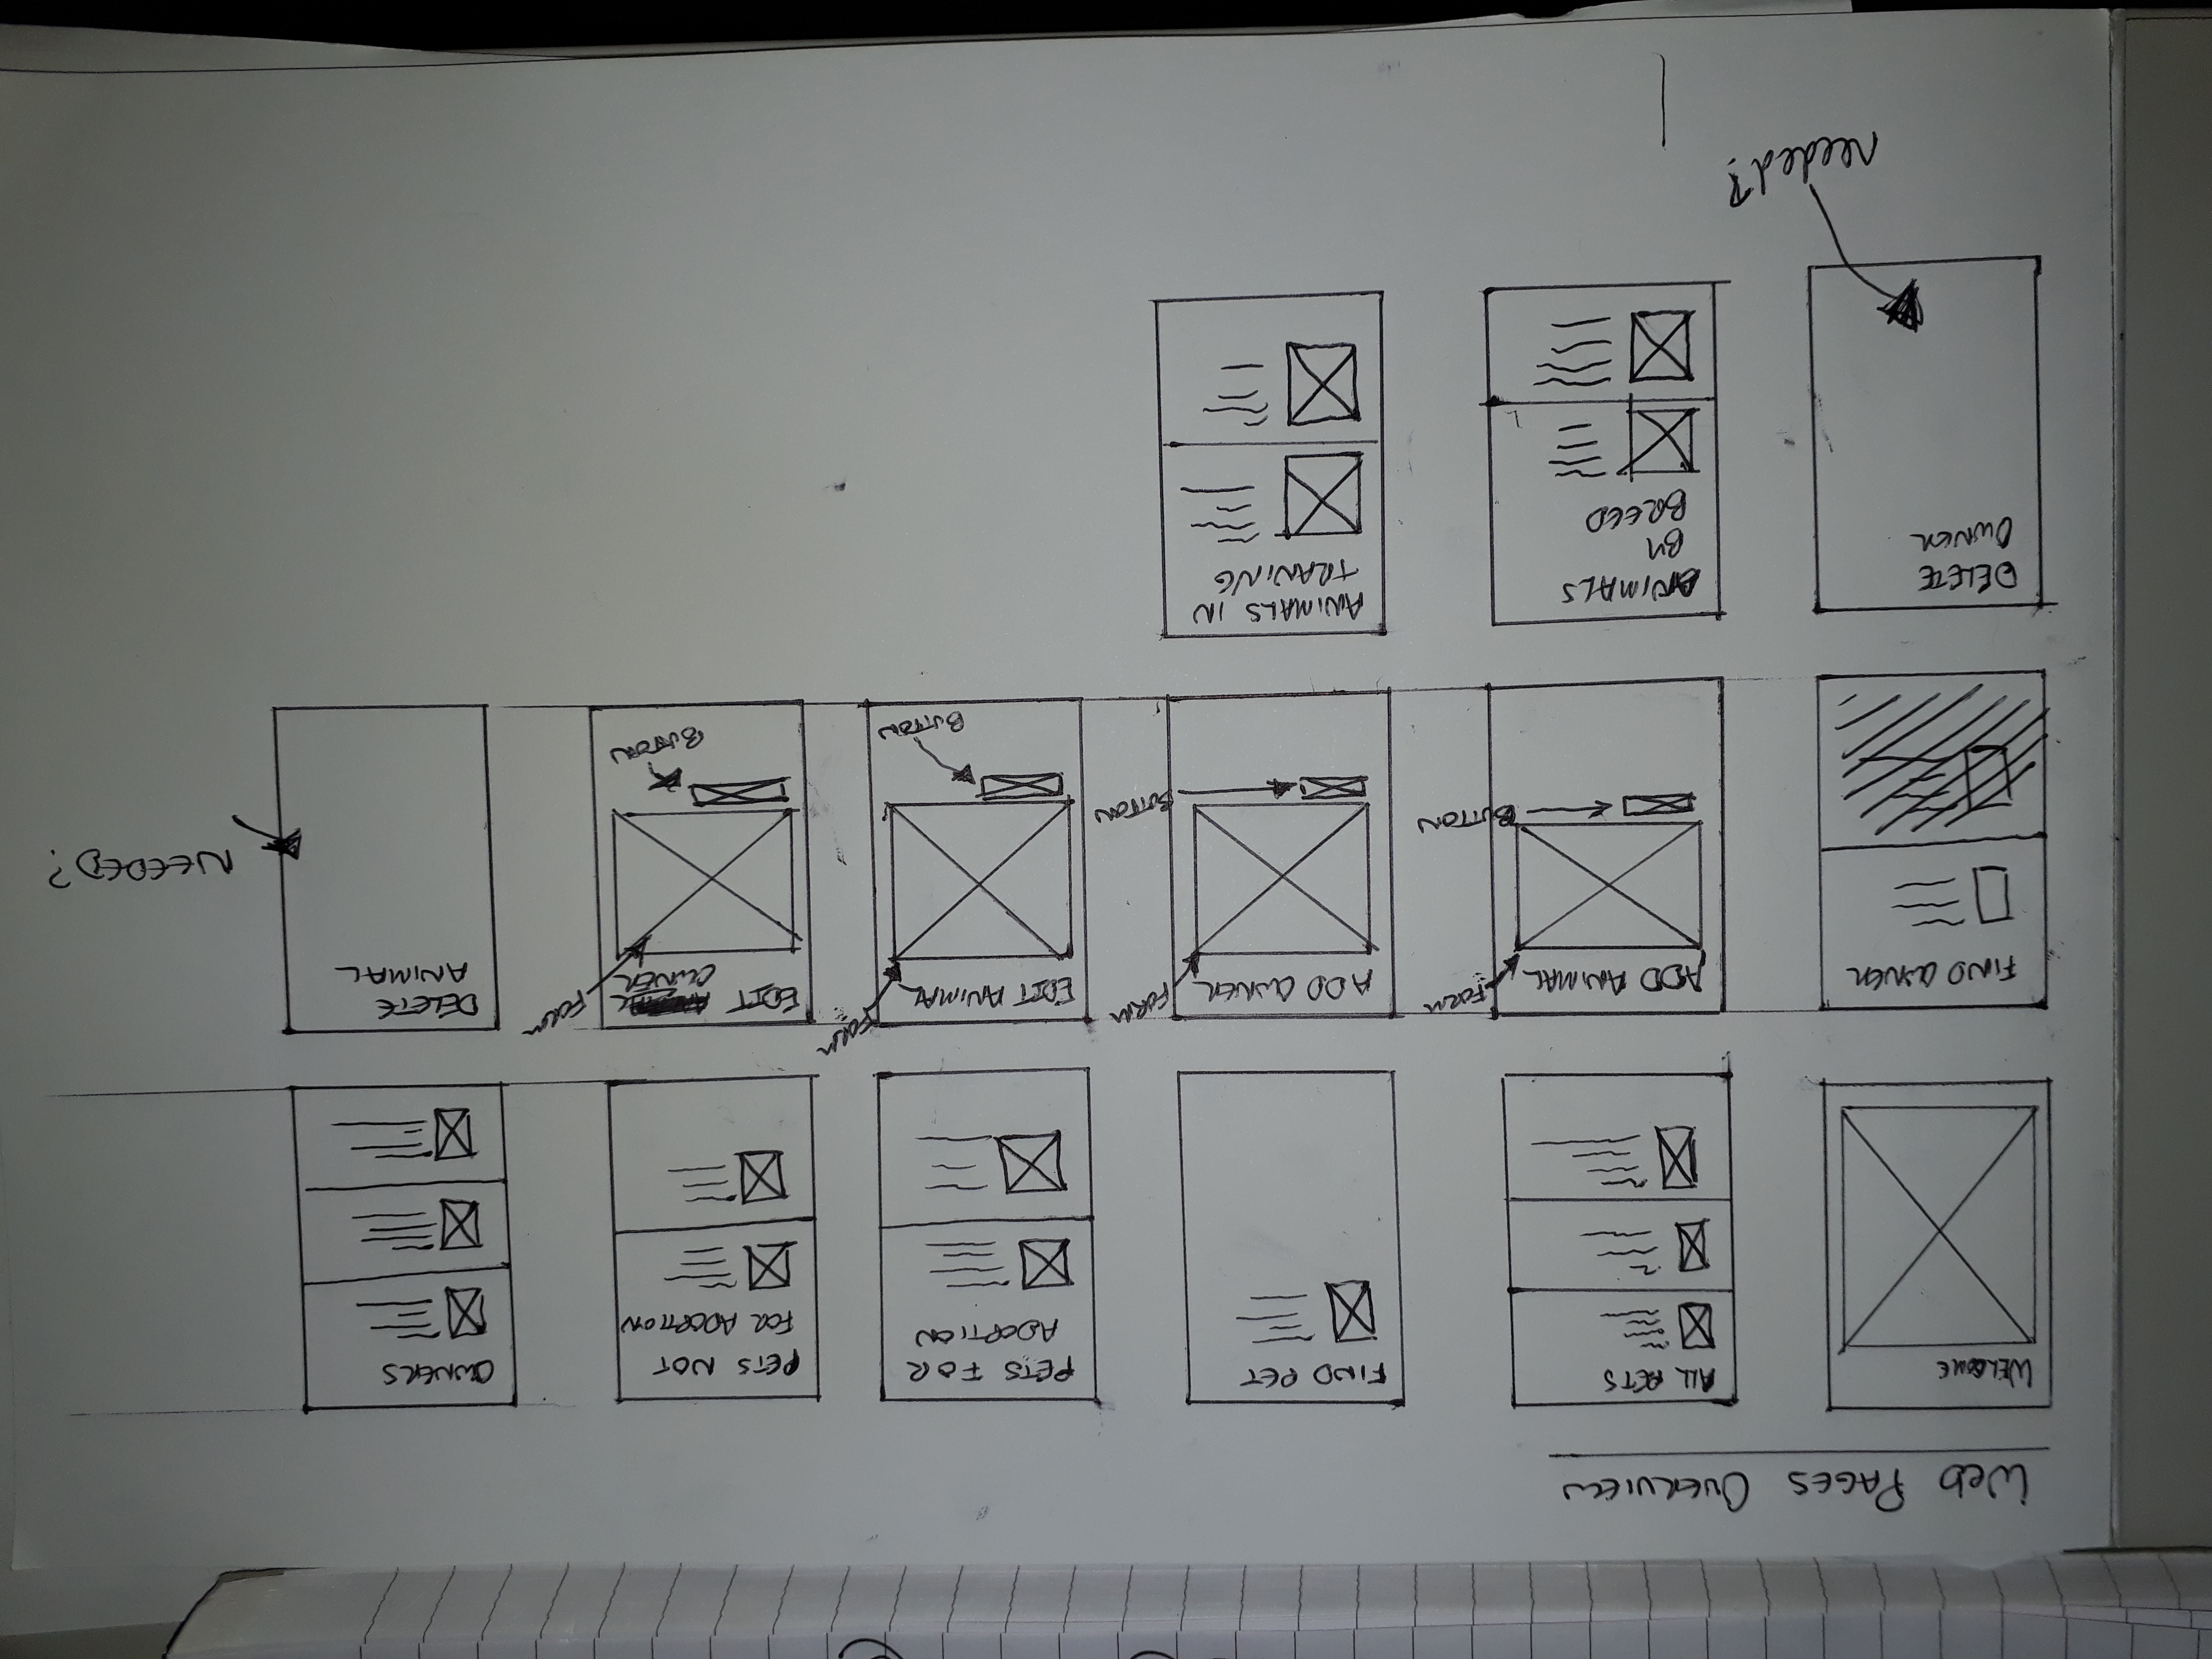 Web Pages Overview
WELCOME
ALL PETS
FIND PET
PETS FOR
ADOPTION
PETS NOT
FOR ADOPTION
OWNERS
FIND OWNER
ADD ANIMAL
FORM
BUTTON
ADD OWNER
FORM
BUTTON
EDIT ANIMAL
FORM
BUTTON
EDIT
OWNER
FORM
BUTTON
DELETE
ANIMAL
NEEDED?
DELETE
OWNER
needed?
ANIMALS
BY
BREED
ANIMALS IN
TRANING